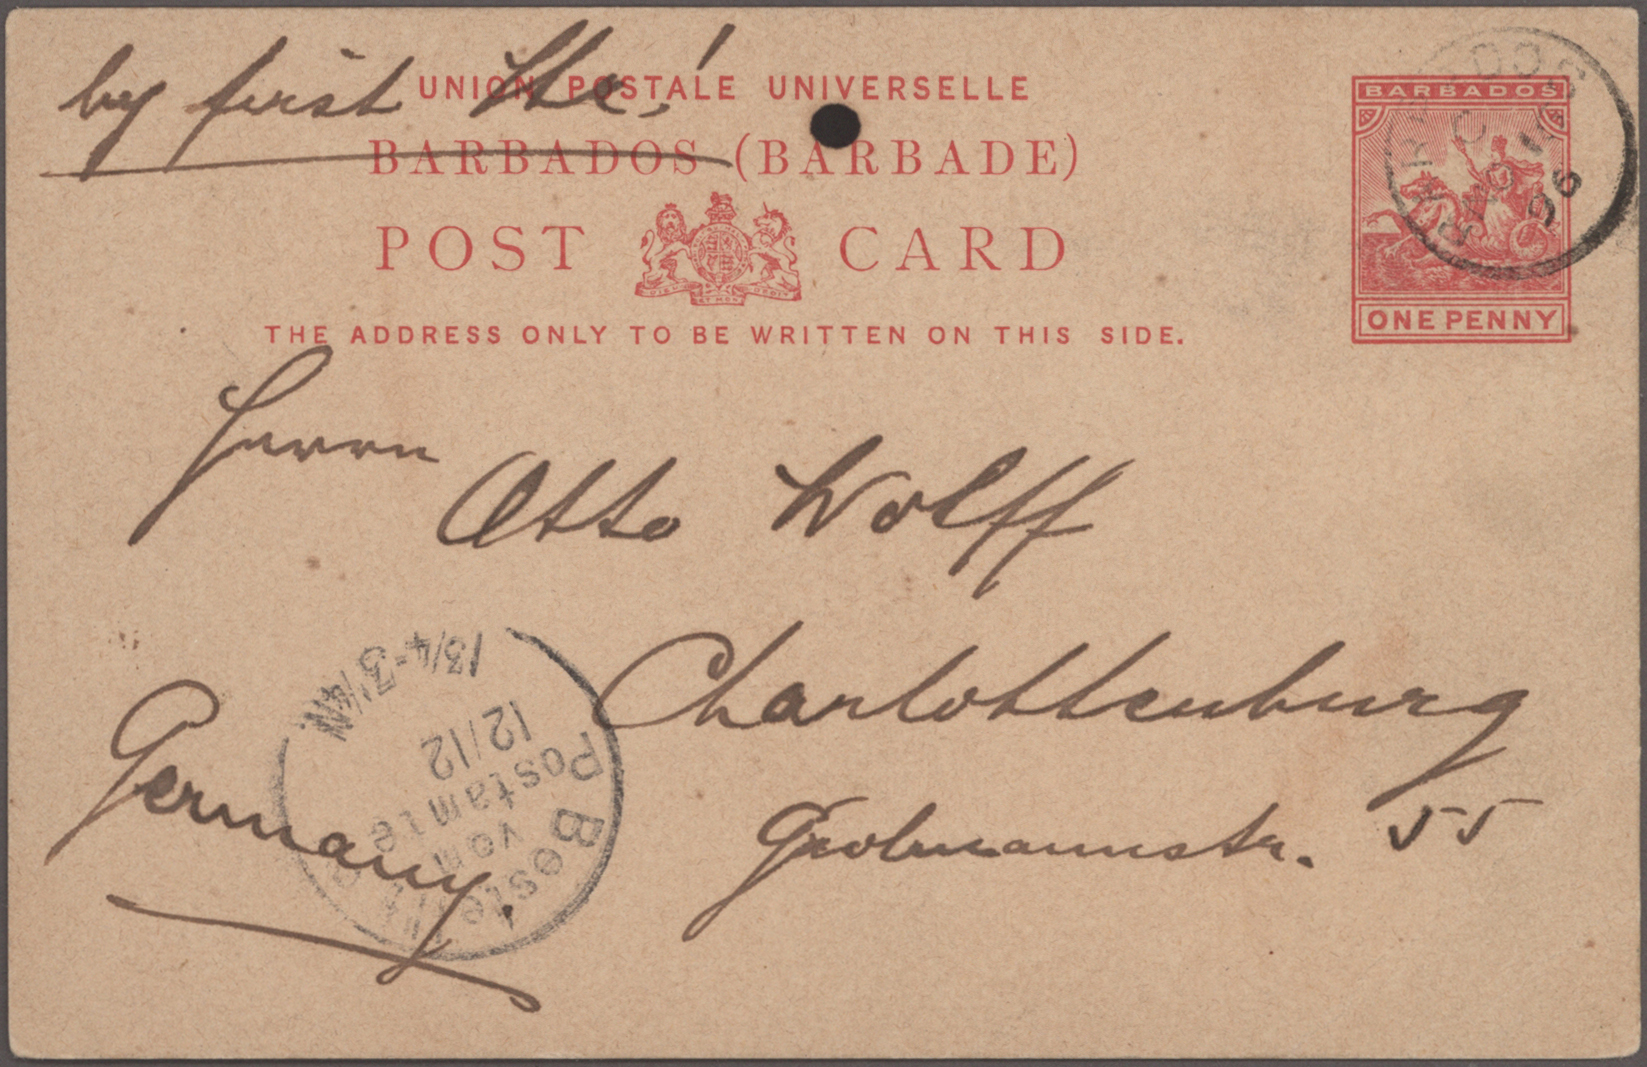 by first Str!
UNION POSTALE UNIVERSELLE
BARBADOS (BARBADE)
POST CARD
THE ADDRESS ONLY TO BE WRITTEN ON THIS SIDE.
BARBADOS
ONE PENNY
BARBADOS
96
Herrn
Otto Wolff
Charlottenburg
Grolmannstr. 55
Germany.
Bestellt
vom
Postamte
12/12
1 3/4-3 1/4N